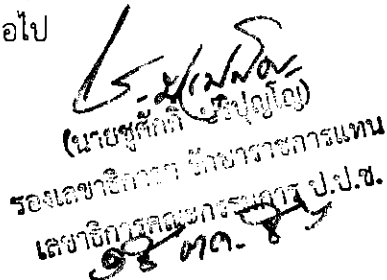 อไป
(นายชูศักดิ์ ปริปุญโญ)
รองเลขาธิการฯ รักษาราชการแทน
เลขาธิการคณะกรรมการ ป.ป.ช.
ต.ค.